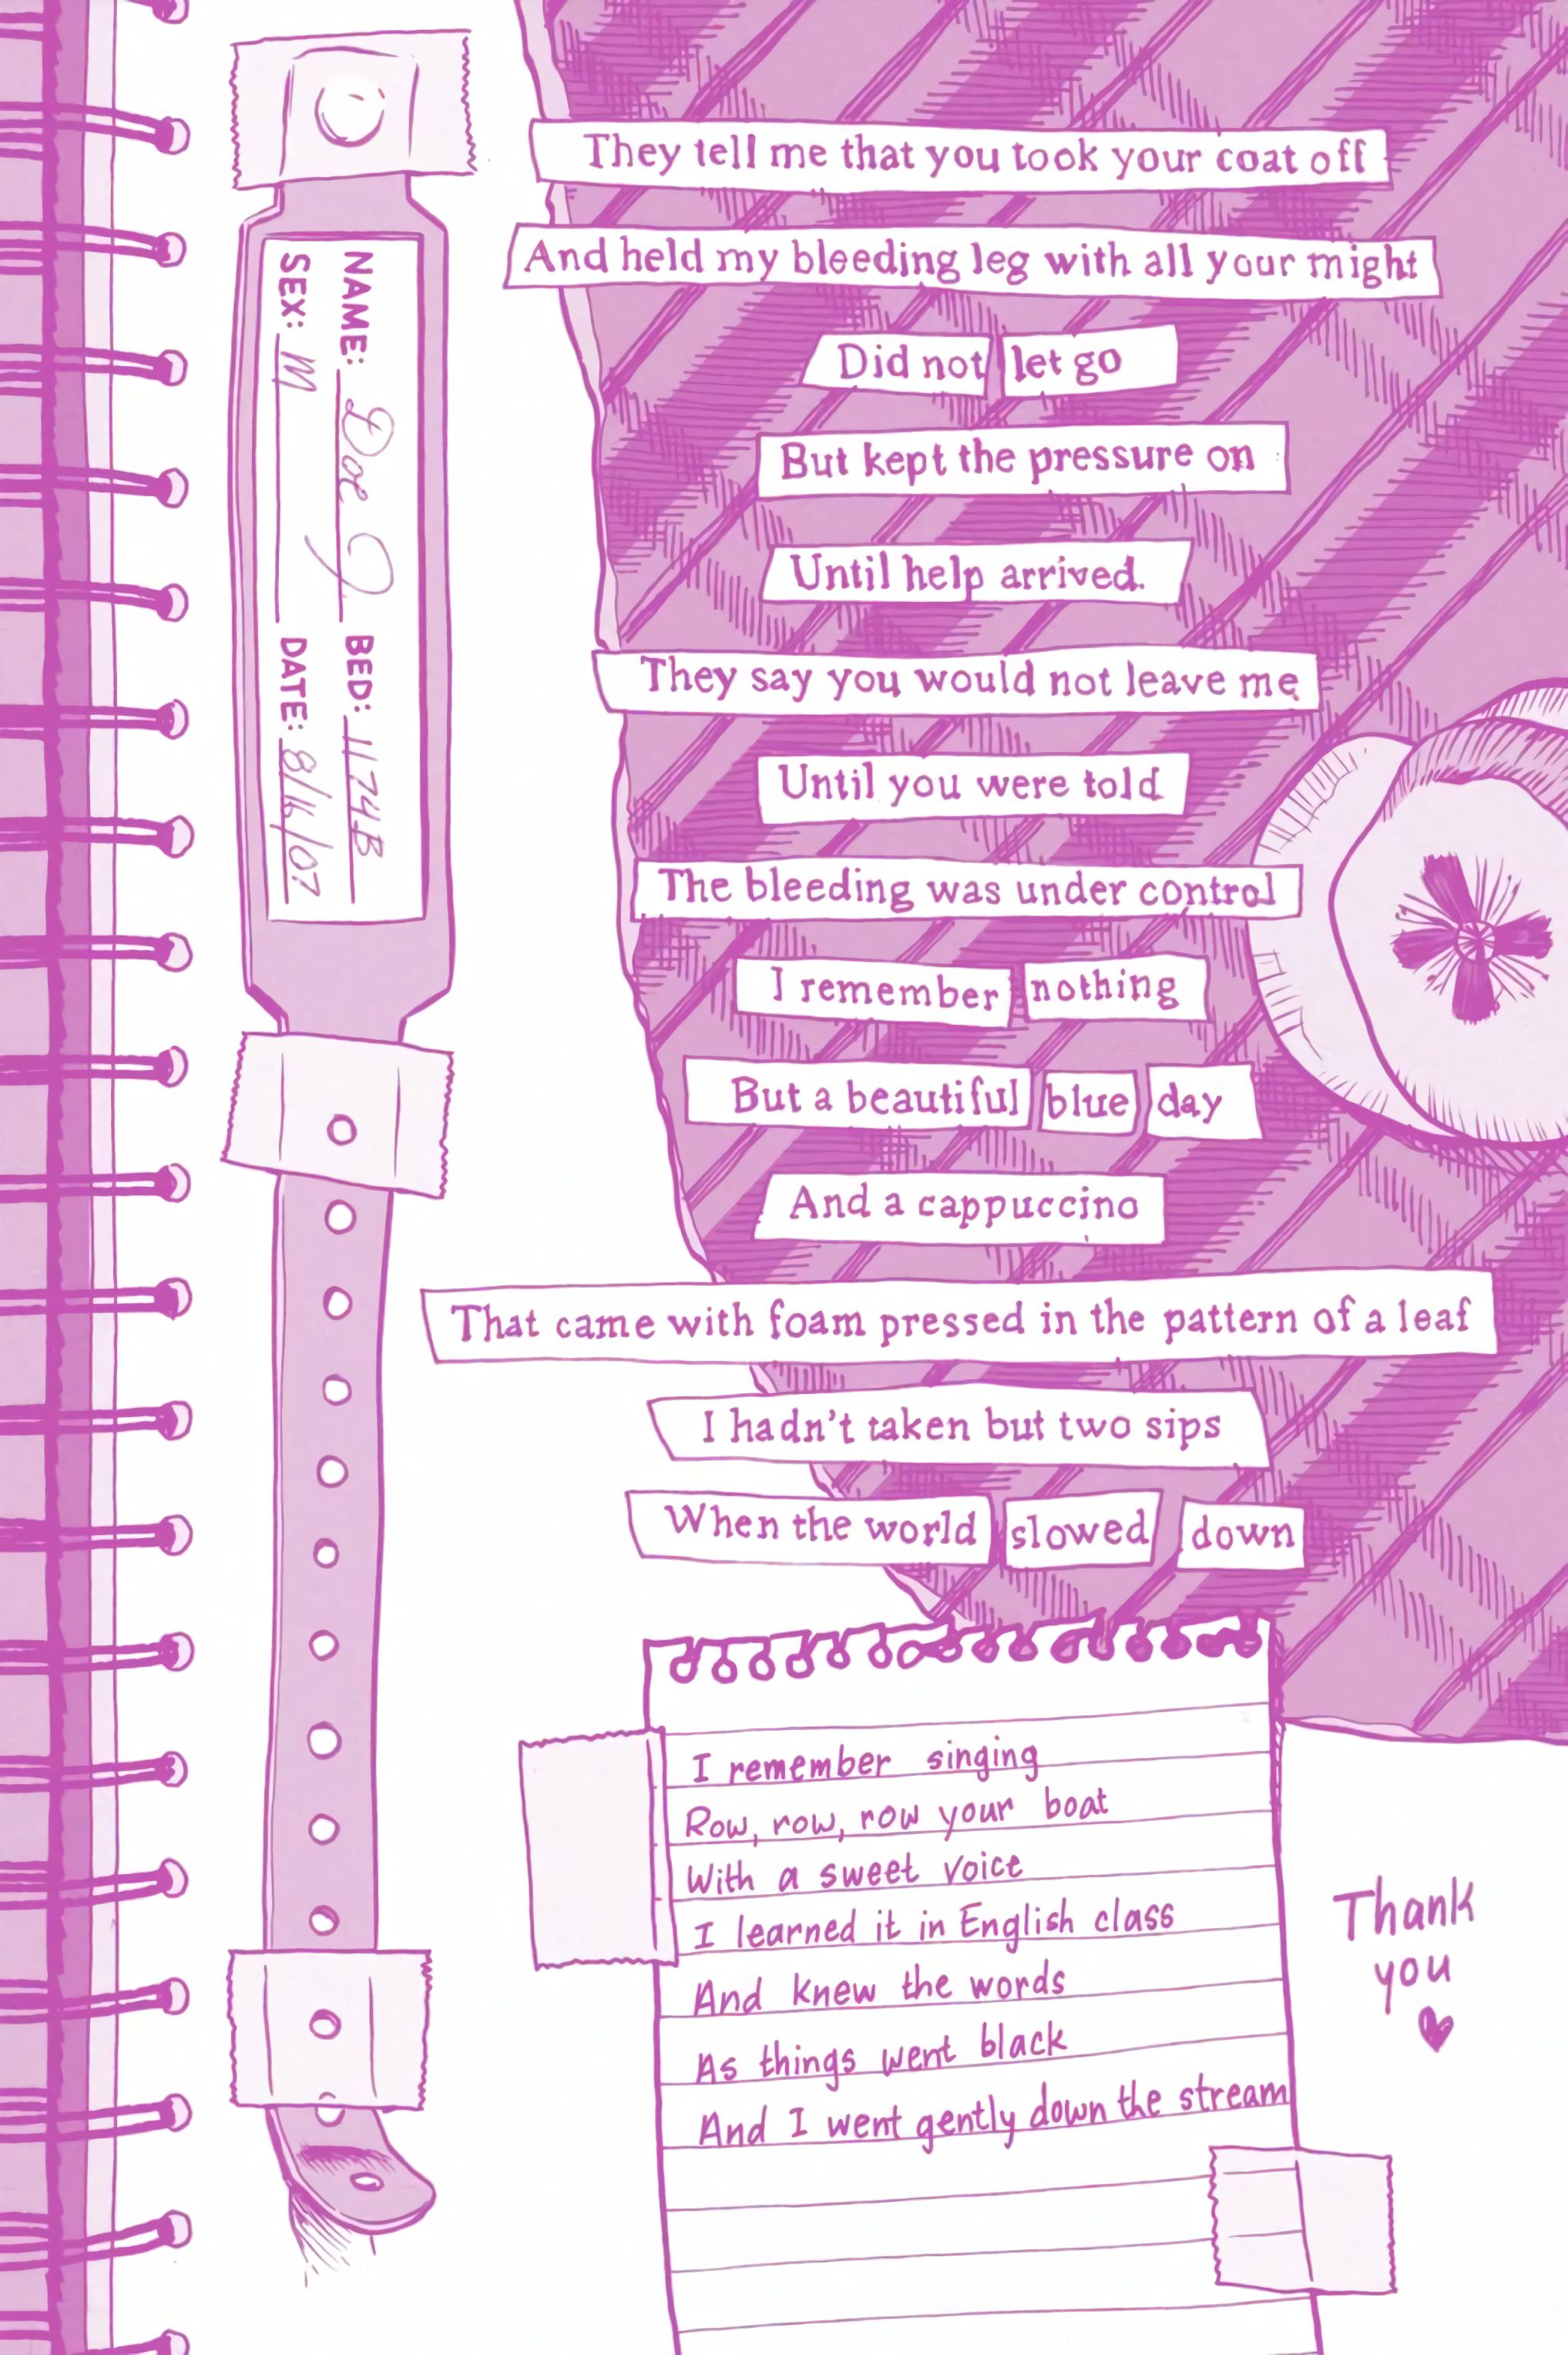 NAME: Doe J
BED: 1174B
SEX: M
DATE: 8/16/07
They tell me that you took your coat off
And held my bleeding leg with all your might
Did not let go
But kept the pressure on
Until help arrived.
They say you would not leave me
Until you were told
The bleeding was under control
I remember nothing
But a beautiful blue day
And a cappuccino
That came with foam pressed in the pattern of a leaf
I hadn't taken but two sips
When the world slowed down
I remember singing
Row, row, row your boat
With a sweet voice
I learned it in English class
And knew the words
As things went black
And I went gently down the stream
Thank
you